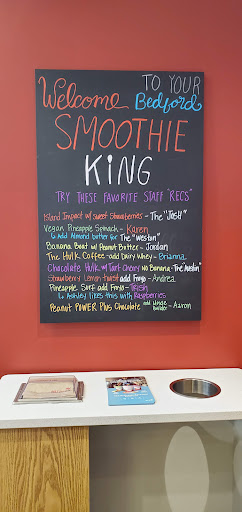 Welcome TO YOUR
Bedford
SMOOTHIE
KING
TRY THESE FAVORITE STAFF "RECS"
Island Impact w/ Sweet Strawberries - The "Josh"
Vegan Pineapple Spinach - Karen
↳ add Almond butter for The "Weston"
Banana Boat w/ Peanut Butter - Jordan
The Hulk Coffee - add Dairy Whey - Brianna
Chocolate Hulk w/ Tart Cherry No Banana - The "Austin"
Strawberry Lemon-twist add - Andrea
Pineapple Surf add - Trish
↳ Ashley likes this with Raspberries
Peanut POWER Plus Chocolate add Muscle Builder - Aaron